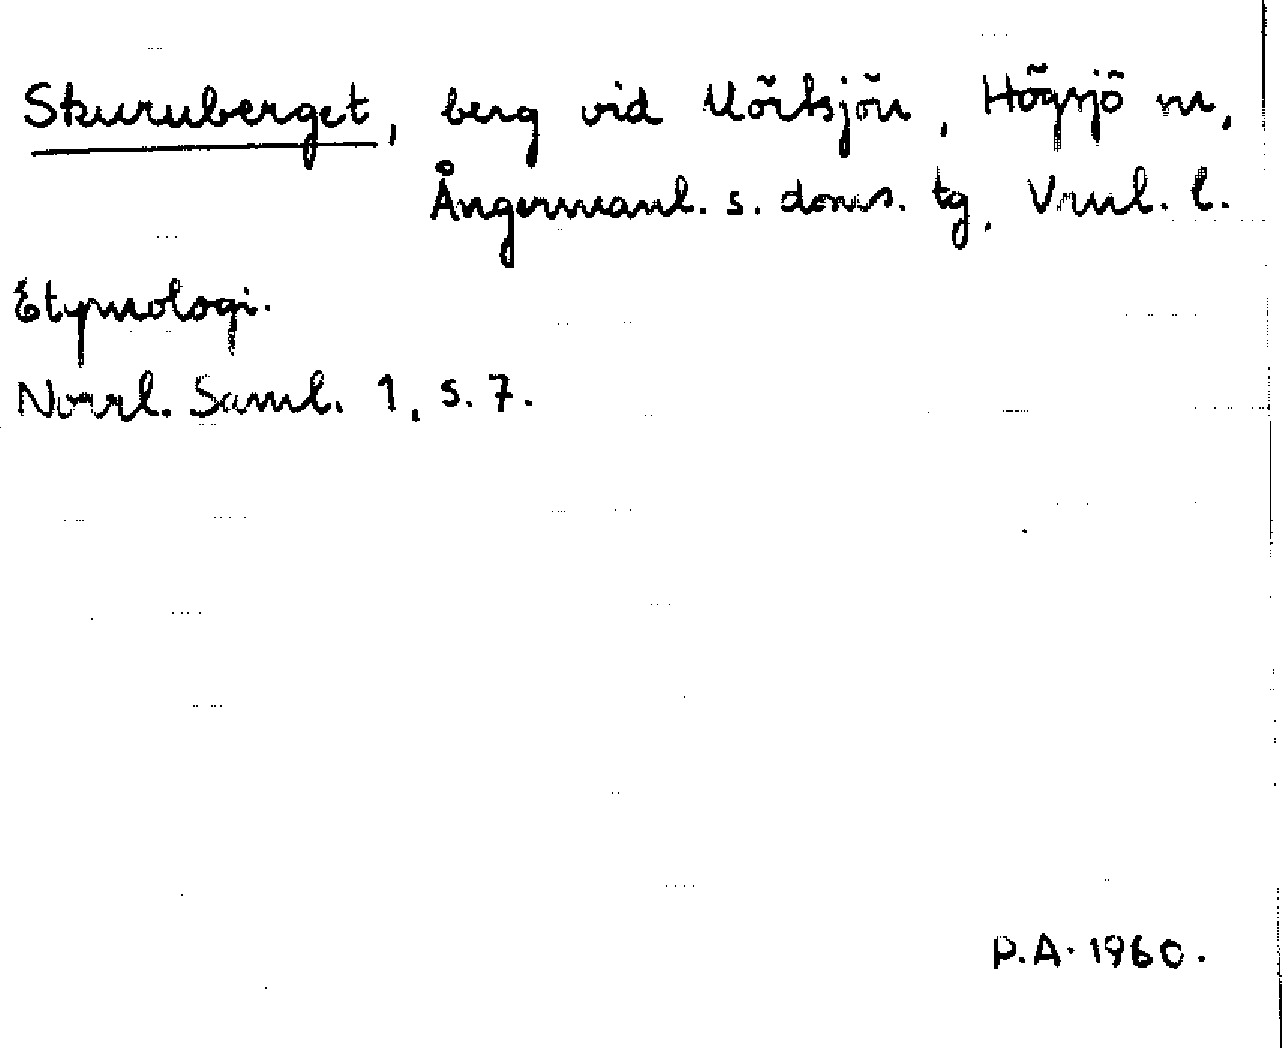 Skuruberget, berg vid Mörtsjön, Högsjö sn,
Ångermanl. s. doms. tg. Vnl. l.
Etymologi.
Norrl. Saml. 1, s. 7.
P.A. 1960.